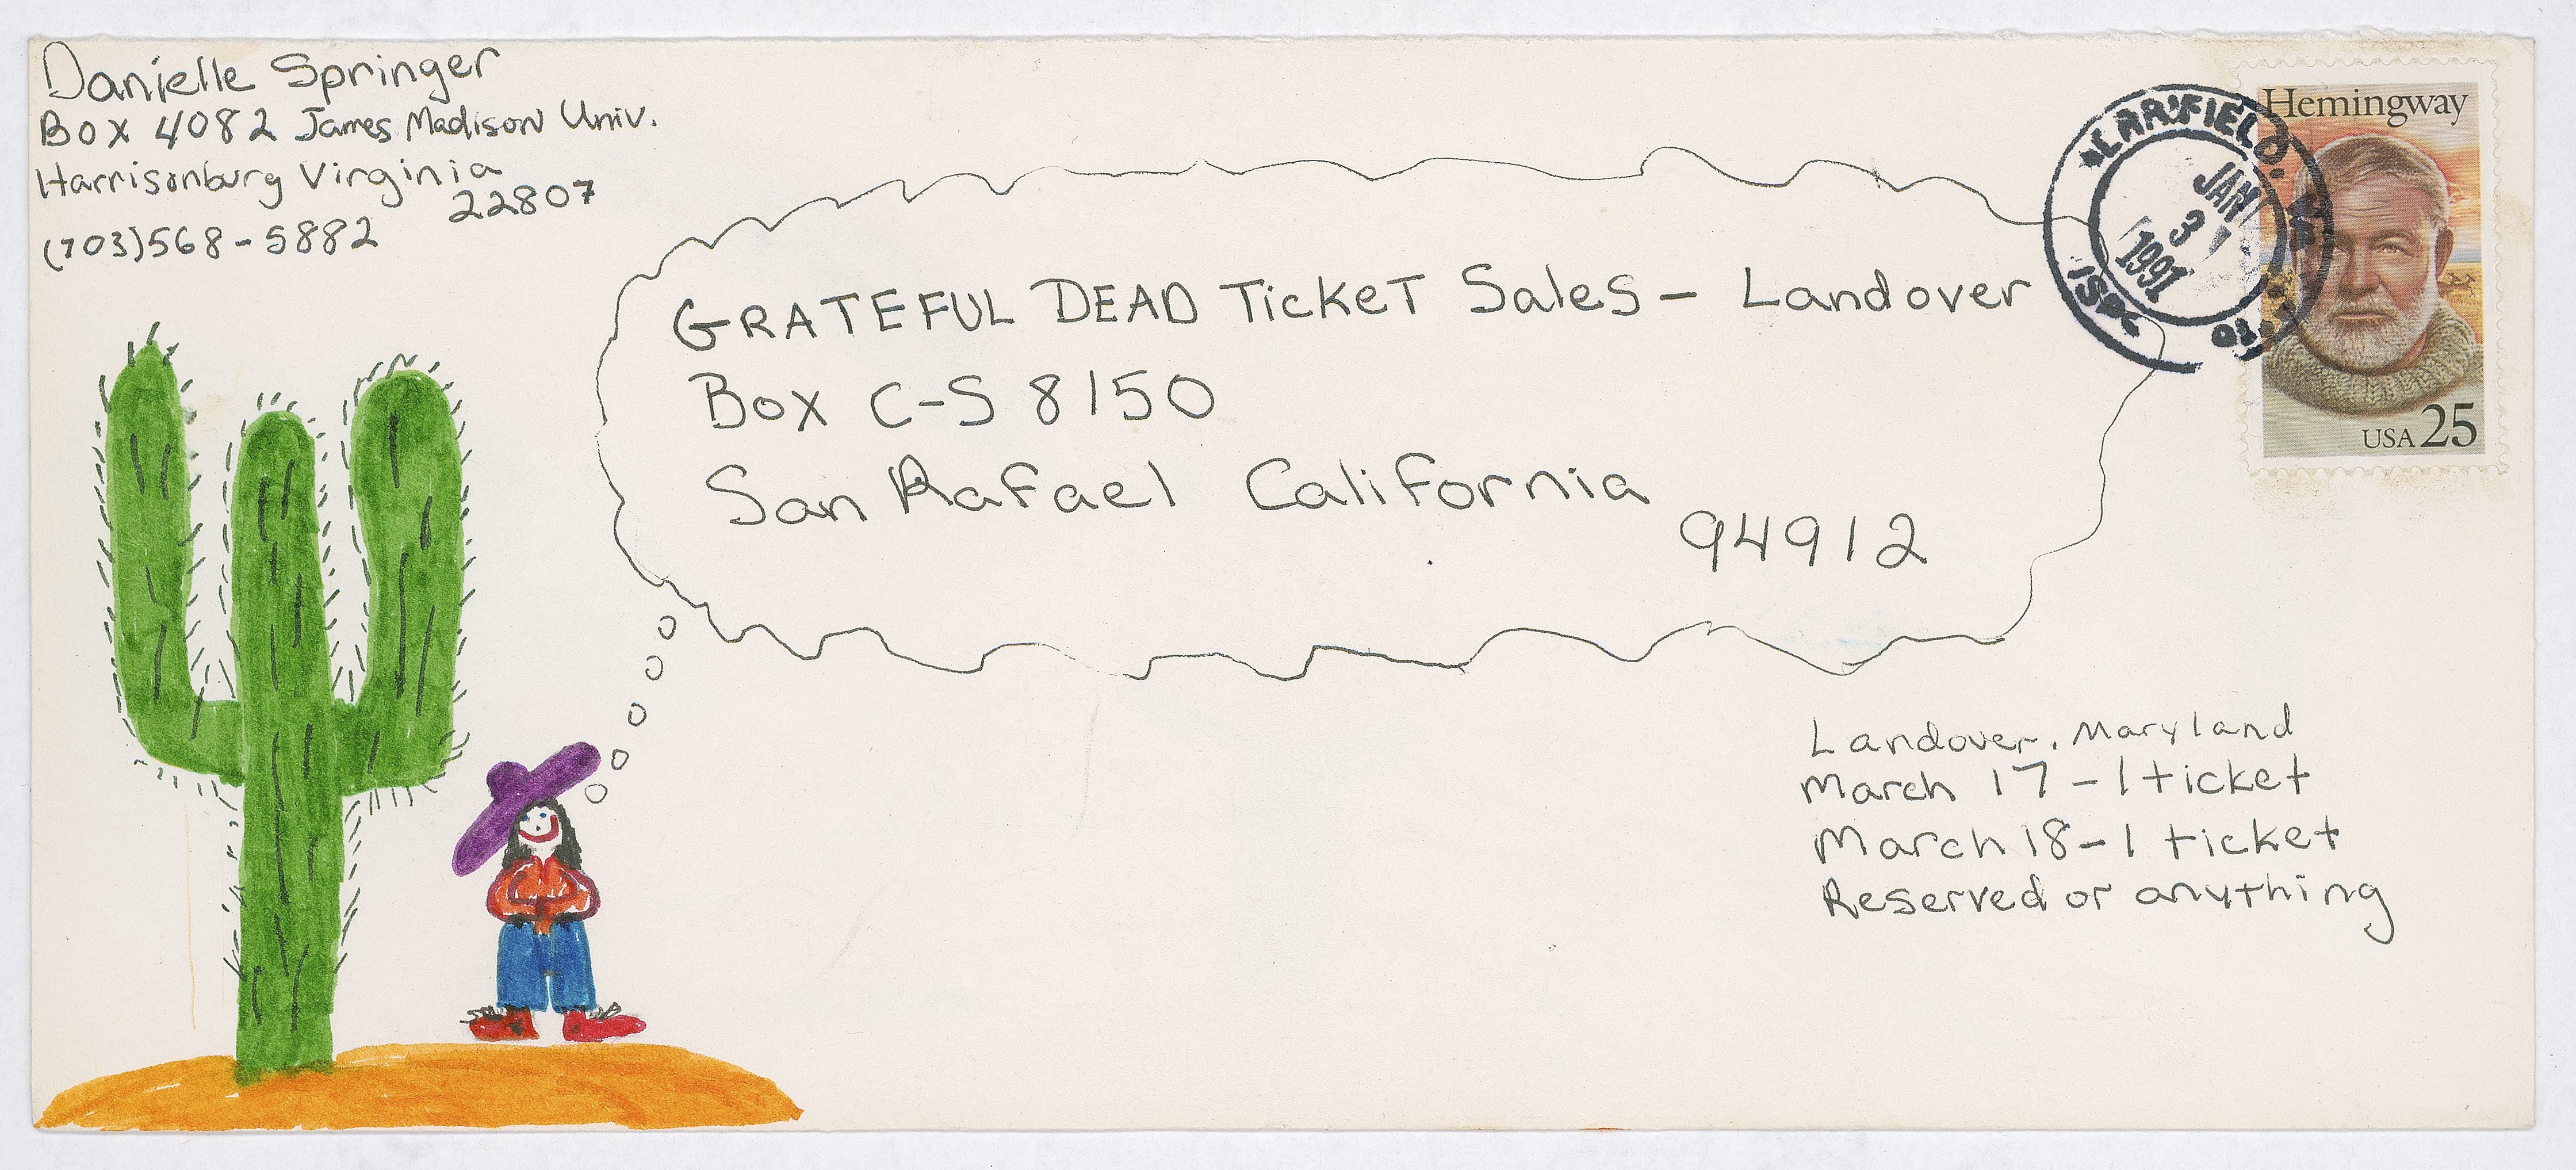 Danielle Springer
Box 4082 James Madison Univ.
Harrisonburg Virginia
22807
(703)568-5882
Hemingway
USA 25
JAN
31
1991
GRATEFUL DEAD Ticket Sales - Landover
Box C-S 8150
San Rafael California
94912
Landover, Maryland
March 17 - 1 ticket
March 18 - 1 ticket
Reserved or anything